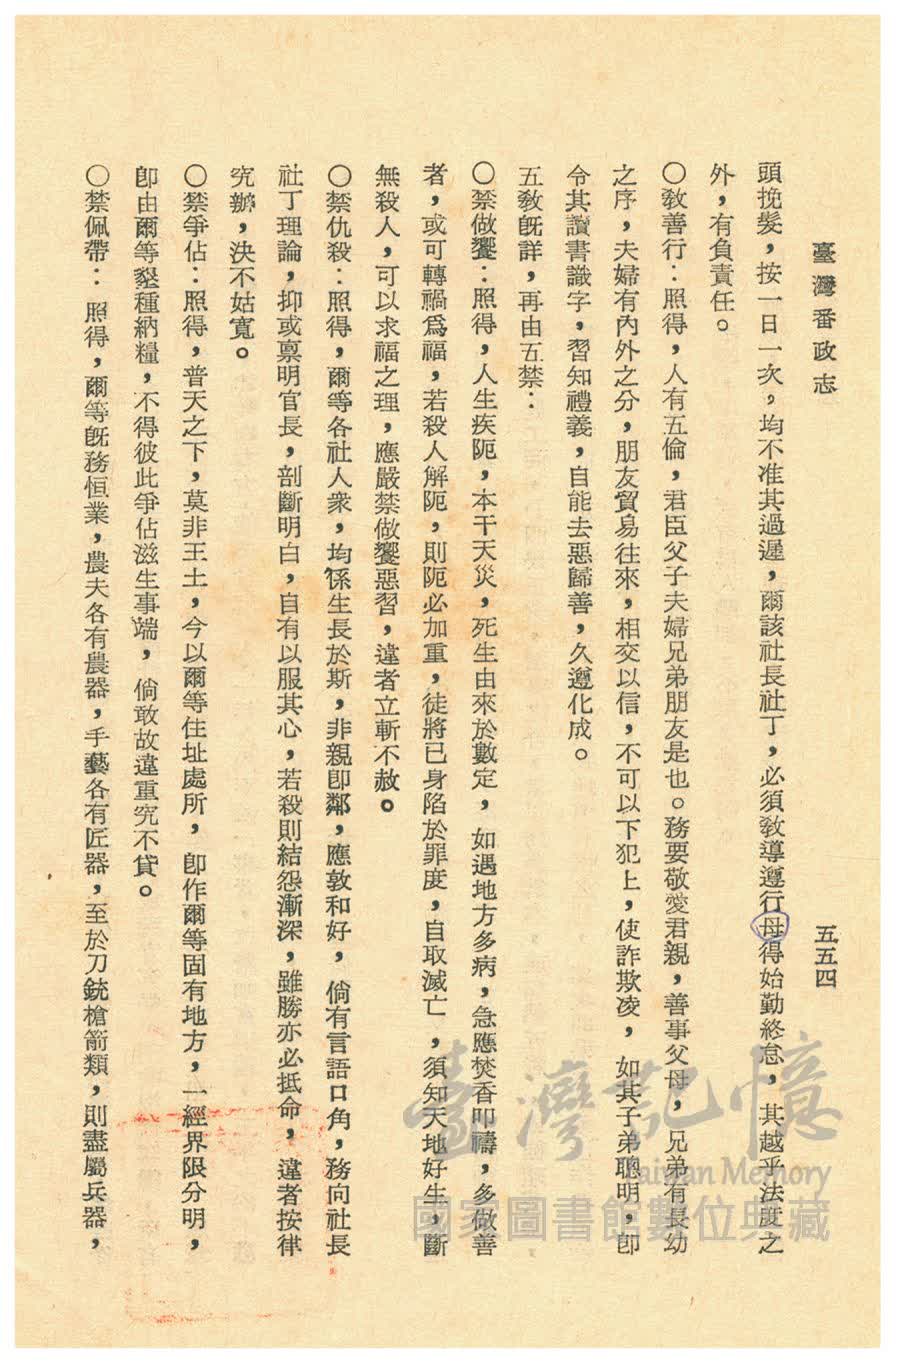 臺灣番政志
五五四
頭挽髮，按一日一次，均不准其過遲，爾該社長社丁，必須敎導遵行母得始勤終怠，其越乎法度之
外，有負責任。
〇敎善行：照得，人有五倫，君臣父子夫婦兄弟朋友是也。務要敬愛君親，善事父母，兄弟有長幼
之序，夫婦有內外之分，朋友貿易往來，相交以信，不可以下犯上，使詐欺凌，如其子弟聰明，卽
令其讀書識字，習知禮義，自能去惡歸善，久遵化成。
五敎旣詳，再由五禁：
〇禁做饗：照得，人生疾阨，本干天災，死生由來於數定，如遇地方多病，急應焚香叩禱，多做善
者，或可轉禍爲福，若殺人解阨，則阨必加重，徒將已身陷於罪度，自取滅亡，須知天地好生，斷
無殺人，可以求福之理，應嚴禁做饗惡習，違者立斬不赦。
〇禁仇殺：照得，爾等各社人衆，均係生長於斯，非親卽鄰，應敦和好，倘有言語口角，務向社長
社丁理論，抑或禀明官長，剖斷明白，自有以服其心，若殺則結怨漸深，雖勝亦必抵命，違者按律
究辦，決不姑寬。
〇禁爭佔：照得，普天之下，莫非王土，今以爾等住址處所，卽作爾等固有地方，一經界限分明，
卽由爾等墾種納糧，不得彼此爭佔滋生事端，倘敢故違重究不貸。
〇禁佩帶：照得，爾等旣務恒業，農夫各有農器，手藝各有匠器，至於刀銃槍箭類，則盡屬兵器，
臺灣記憶
Taiwan Memory
國家圖書館數位典藏